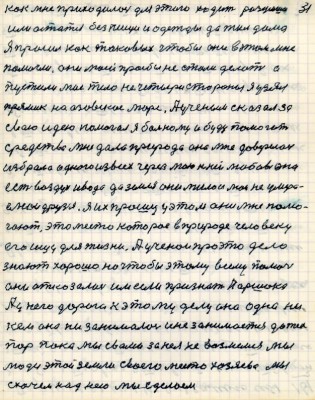 как мне приходилось для этого ходит разным 31
или остатся без пищи и одежды да жил дома
Я просил как таковых чтобы они в том мне
помогли, они моей прозьбы не стали делать а
пустили мое тело не четыри стороны, я уехал
прямик на азовское море, А ученый сказал за
сваю идею помогал я больному и буду помогать
средства мне дала природа она мне доверилась
избрала одного из всех через мою к ней любовь она
есть воздух и вода да земля они милои мои не умира-
емои друзья. Я их прошу у этом они мне помо-
гают, это место которое в природе человеку
его ищу для жизни. А ученои про это дело
знают хорошо но чтобы этому всему помочь
они отказалися им если признат Паршека
А у него дорога к этому делу она одна ни-
кем она ни занималась и не занимается до тех
пор пока мы с вами за нея не возмемся мы
люди этой земли своего место хозяева мы
схочем над нею мы сделаем